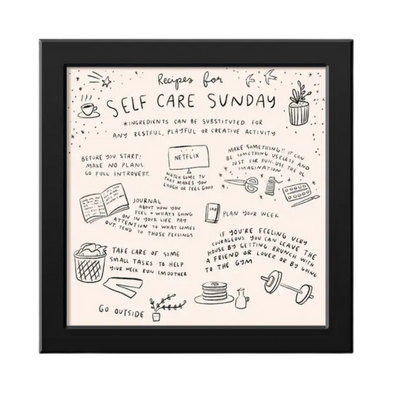 Recipes for
SELF CARE SUNDAY
*INGREDIENTS CAN BE SUBSTITUTED FOR
ANY RESTFUL, PLAYFUL OR CREATIVE ACTIVITY
BEFORE YOU START:
MAKE NO PLANS
GO FULL INTROVERT.
NETFLIX
&
WATCH SOME TV
THAT MAKES YOU
LAUGH OR FEEL GOOD
MAKE SOMETHING!! IT CAN
BE SOMETHING USEFUL AND
JUST FOR FUN. USE THE OL
IMAGINATION
JOURNAL
ABOUT HOW YOU
FEEL + WHAT'S GOING
ON IN YOUR LIFE PAY
ATTENTION TO WHAT COMES
OUT TEND TO THOSE FEELINGS
PLAN YOUR WEEK
TAKE CARE OF SOME
SMALL TASKS TO HELP
YOUR WEEK RUN SMOOTHER
IF YOU'RE FEELING VERY
COURAGEOUS, YOU CAN LEAVE THE
HOUSE BY GETTING BRUNCH WITH
A FRIEND OR LOVER OR BY GOING
TO THE GYM
GO OUTSIDE